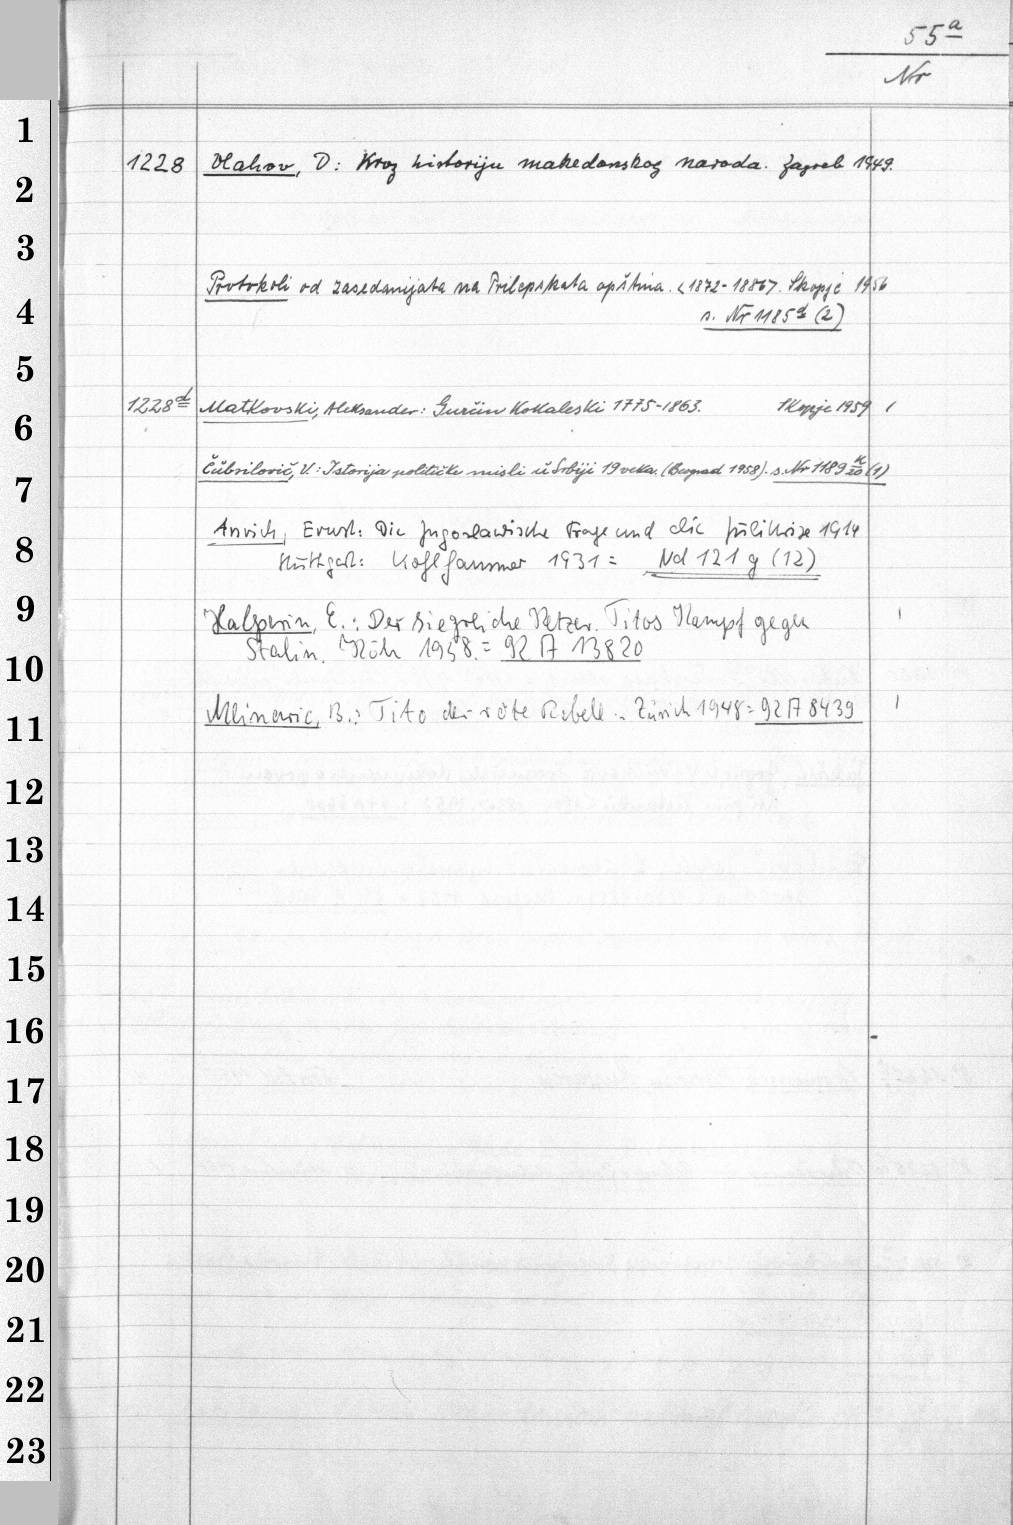 55a
Nr
1
1228 Vlahov, D: Kroz historiju makedonskog naroda. Zagreb 1949.
2
3
Protokoli od zasedanijata na Prilepskata opština. <1872-1886>. Skopje 1956
4 s. Nr 1185d (2)
5
1228d Matkovski, Aleksandar: Gurčin Kokaleski 1775-1863. Skopje 1959 1
6
Čubrilović, V: Istorija političke misli u Srbiji 19 veka. (Beograd 1958). s. Nr 1189 k/20 (1)
7
Anrich, Ernst: Die jugoslawische Frage und die Julikrise 1914
8 Stuttgart: Kohlhammer 1931 = Nd 121 g (12)
9 Halperin, E.: Der siegreiche Ketzer. Titos Kampf gegen 1
10 Stalin. Köln 1958. = 92 A 13820
11 Mlinaric, B.: Tito der rote Rebell. Zürich 1948 = 92 A 8439 1
12
13
14
15
16
17
18
19
20
21
22
23